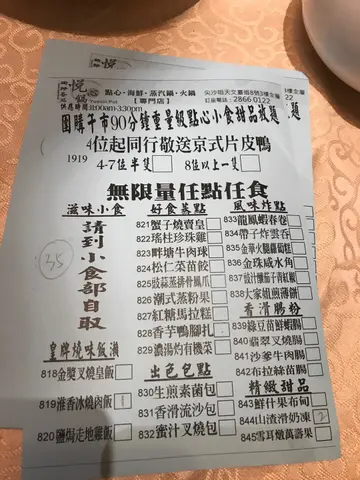 悅
Yuexin Pot
供應時間:00am-3:30pm
點心·海鮮·蒸汽鍋·火鍋
【專門店】
尖沙咀天文臺圍8號3樓全層
訂座電話: 2866 0122
團購午市90分鐘重量級點心小食甜品放題
4位起同行敬送京式片皮鴨
1919 4-7位半隻 8位以上一隻
無限量任點任食
滋味小食
請到小食部自取
35
皇牌燒味飯瀨
818金獎叉燒皇飯
819淮香冰燒肉飯 1
820鹽焗走地雞飯
好食蒸點
821蟹子燒賣皇
822瑤柱珍珠雞
823畔塘牛肉球
824松仁菜苗餃
825豉蒜蒸排骨鳳爪
826潮式蒸粉果
827紅糖馬拉糕
828香芋鴨腳扎
829濃湯灼有機菜
出色包點
830生煎素菌包
831香滑流沙包
832蜜汁叉燒包
風味炸點
833龍鳳蝦春卷
834帶子炸雲吞
835金華火腿蘿蔔糕
836金珠咸水角
837豉汁釀茄子青紅椒
838大家姐煎薄餅
香滑腸粉
839綠豆苗鮮蝦腸
840翡翠叉燒腸
841沙爹牛肉腸
842布拉絲苗腸
精緻甜品
843鮮什果布甸
844山渣滑奶凍 2
845雪耳燉萬壽果